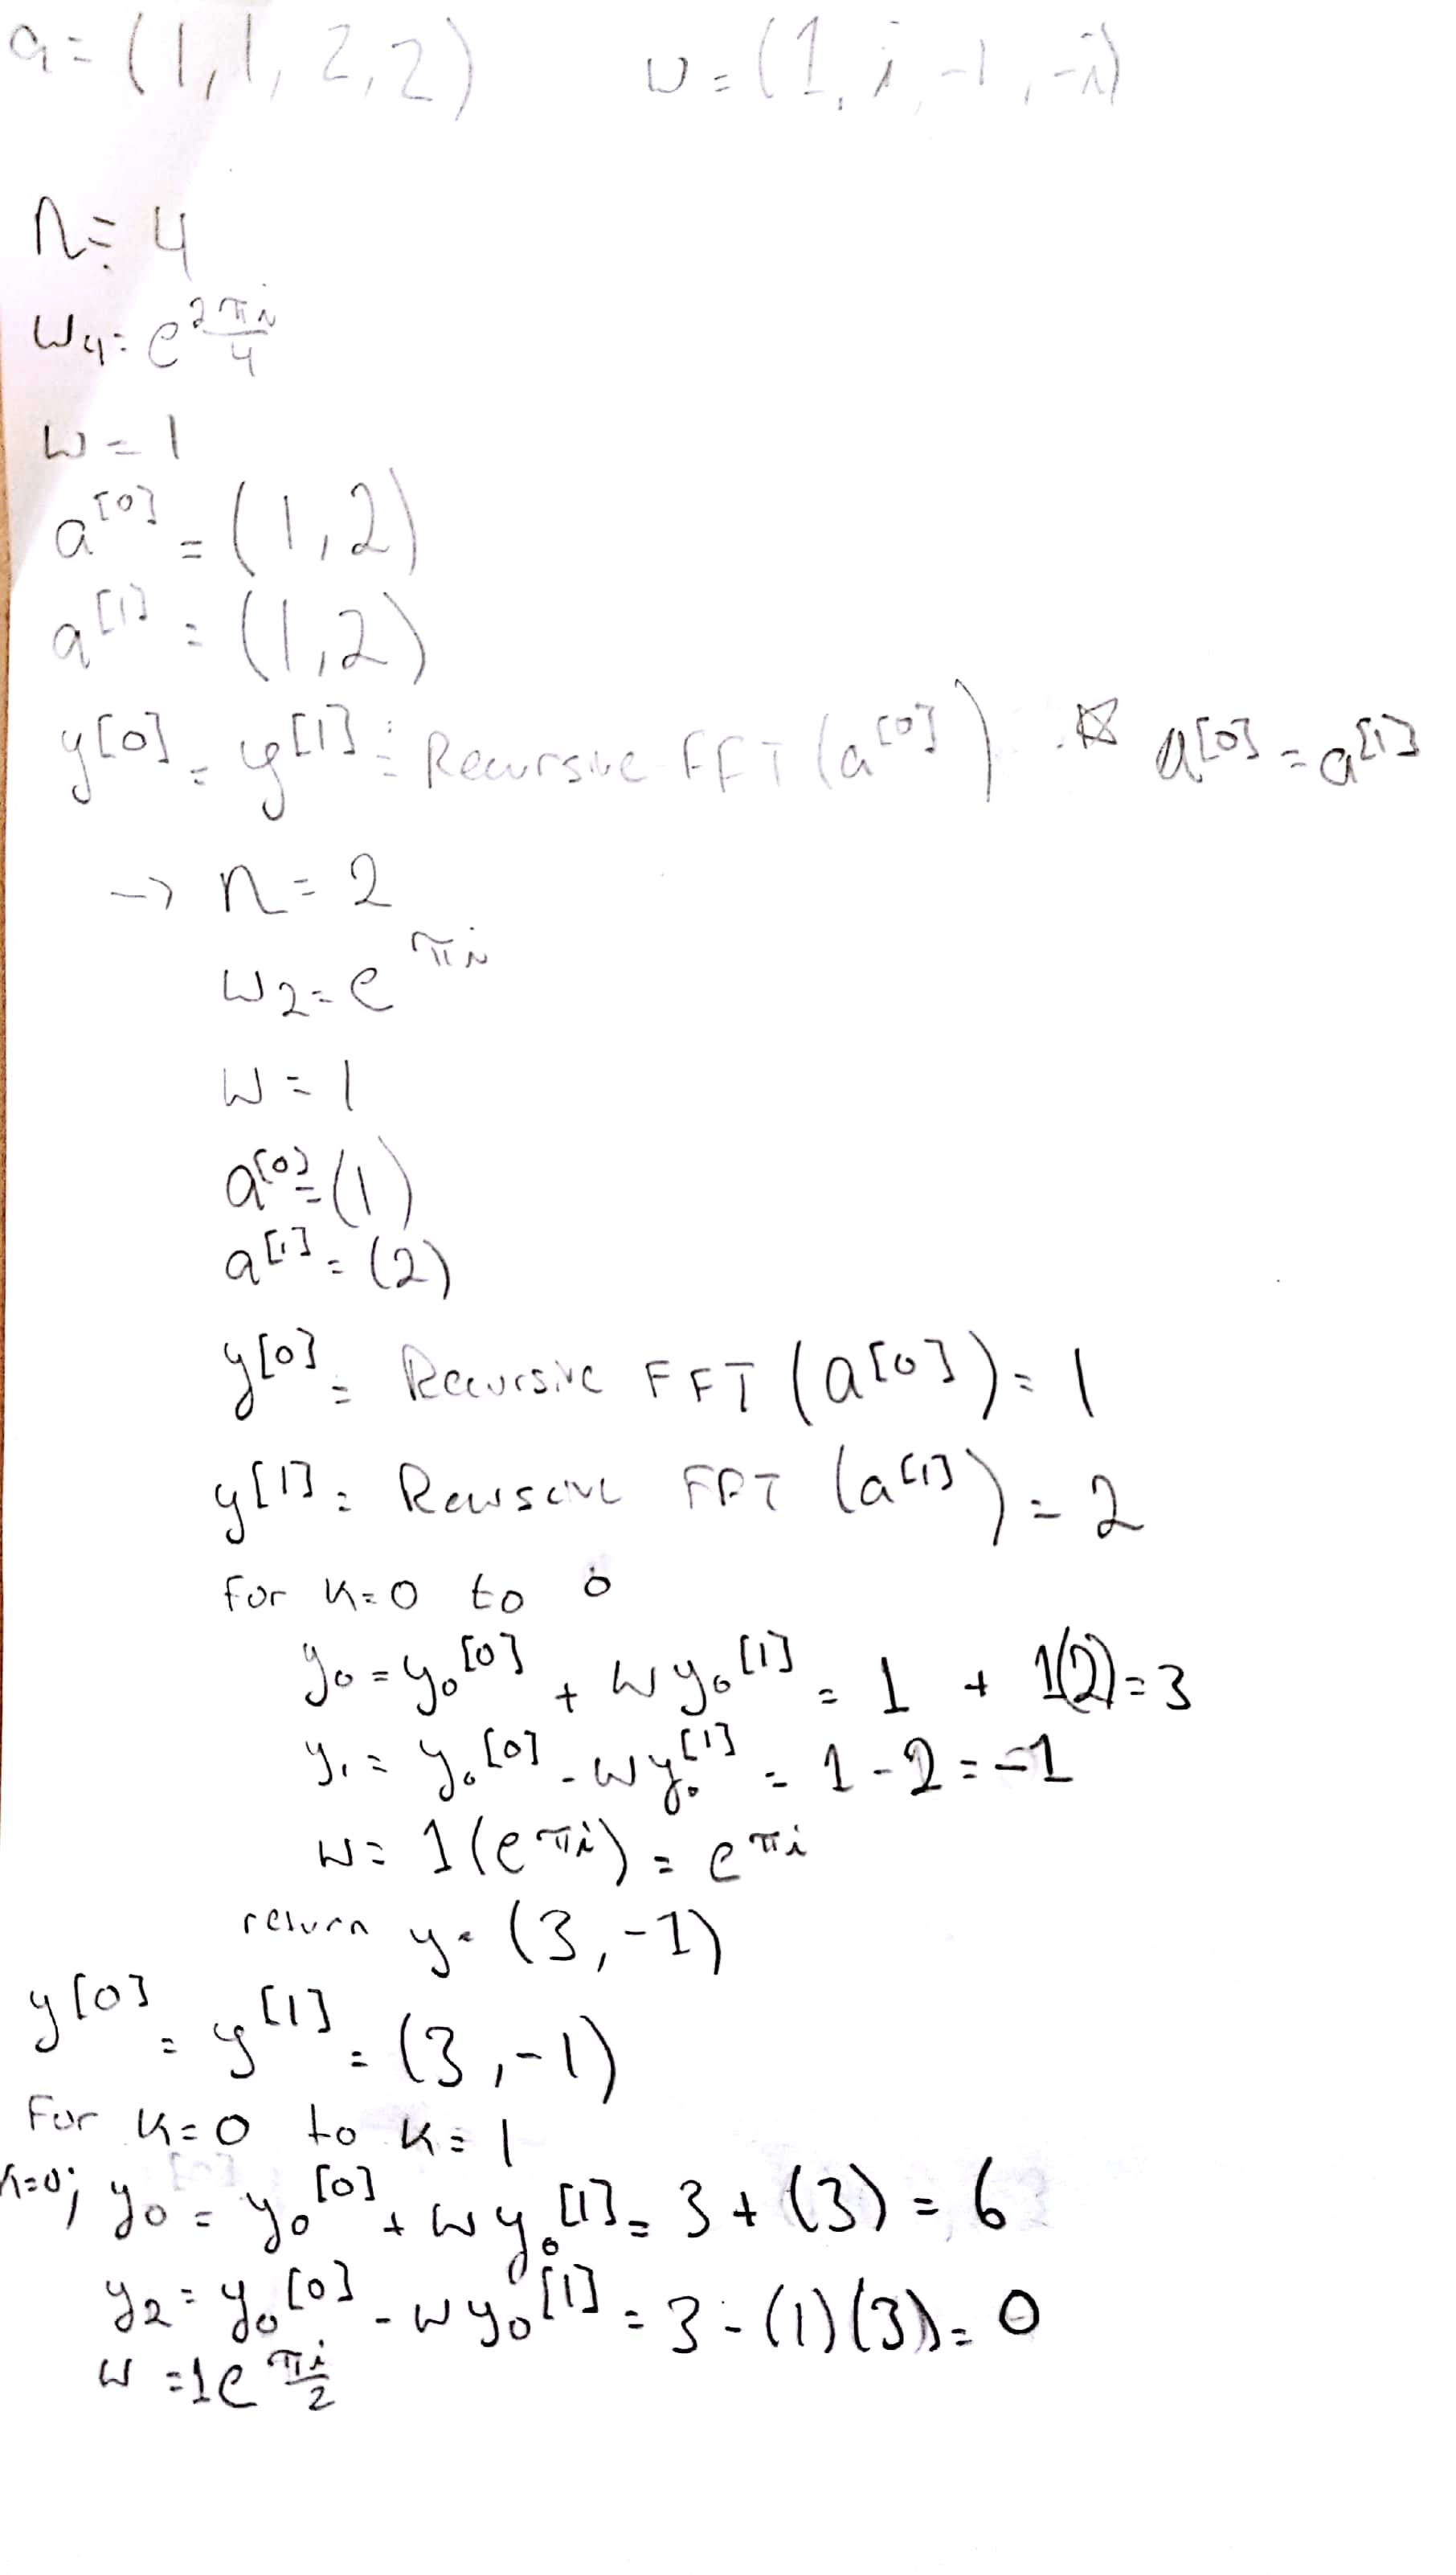 a = (1, 1, 2, 2) w = (1, i, -1, -i)
n = 4
w₄ = e^(2πi/4)
w = 1
a^[0] = (1, 2)
a^[1] = (1, 2)
y^[0] = y^[1] = Recursive FFT (a^[0]) ☆ a^[0] = a^[1]
→ n = 2
w₂ = e^πi
w = 1
a^[0] = (1)
a^[1] = (2)
y^[0] = Recursive FFT (a^[0]) = 1
y^[1] = Recursive FFT (a^[1]) = 2
for k=0 to 0
y₀ = y₀^[0] + w y₀^[1] = 1 + 1(2) = 3
y₁ = y₀^[0] - w y₀^[1] = 1 - 2 = -1
w = 1(e^πi) = e^πi
return y = (3, -1)
y^[0] = y^[1] = (3, -1)
For k=0 to k=1
k=0; y₀ = y₀^[0] + w y₀^[1] = 3 + (3) = 6
y₂ = y₀^[0] - w y₀^[1] = 3 - (1)(3) = 0
w = 1e^(πi/2)